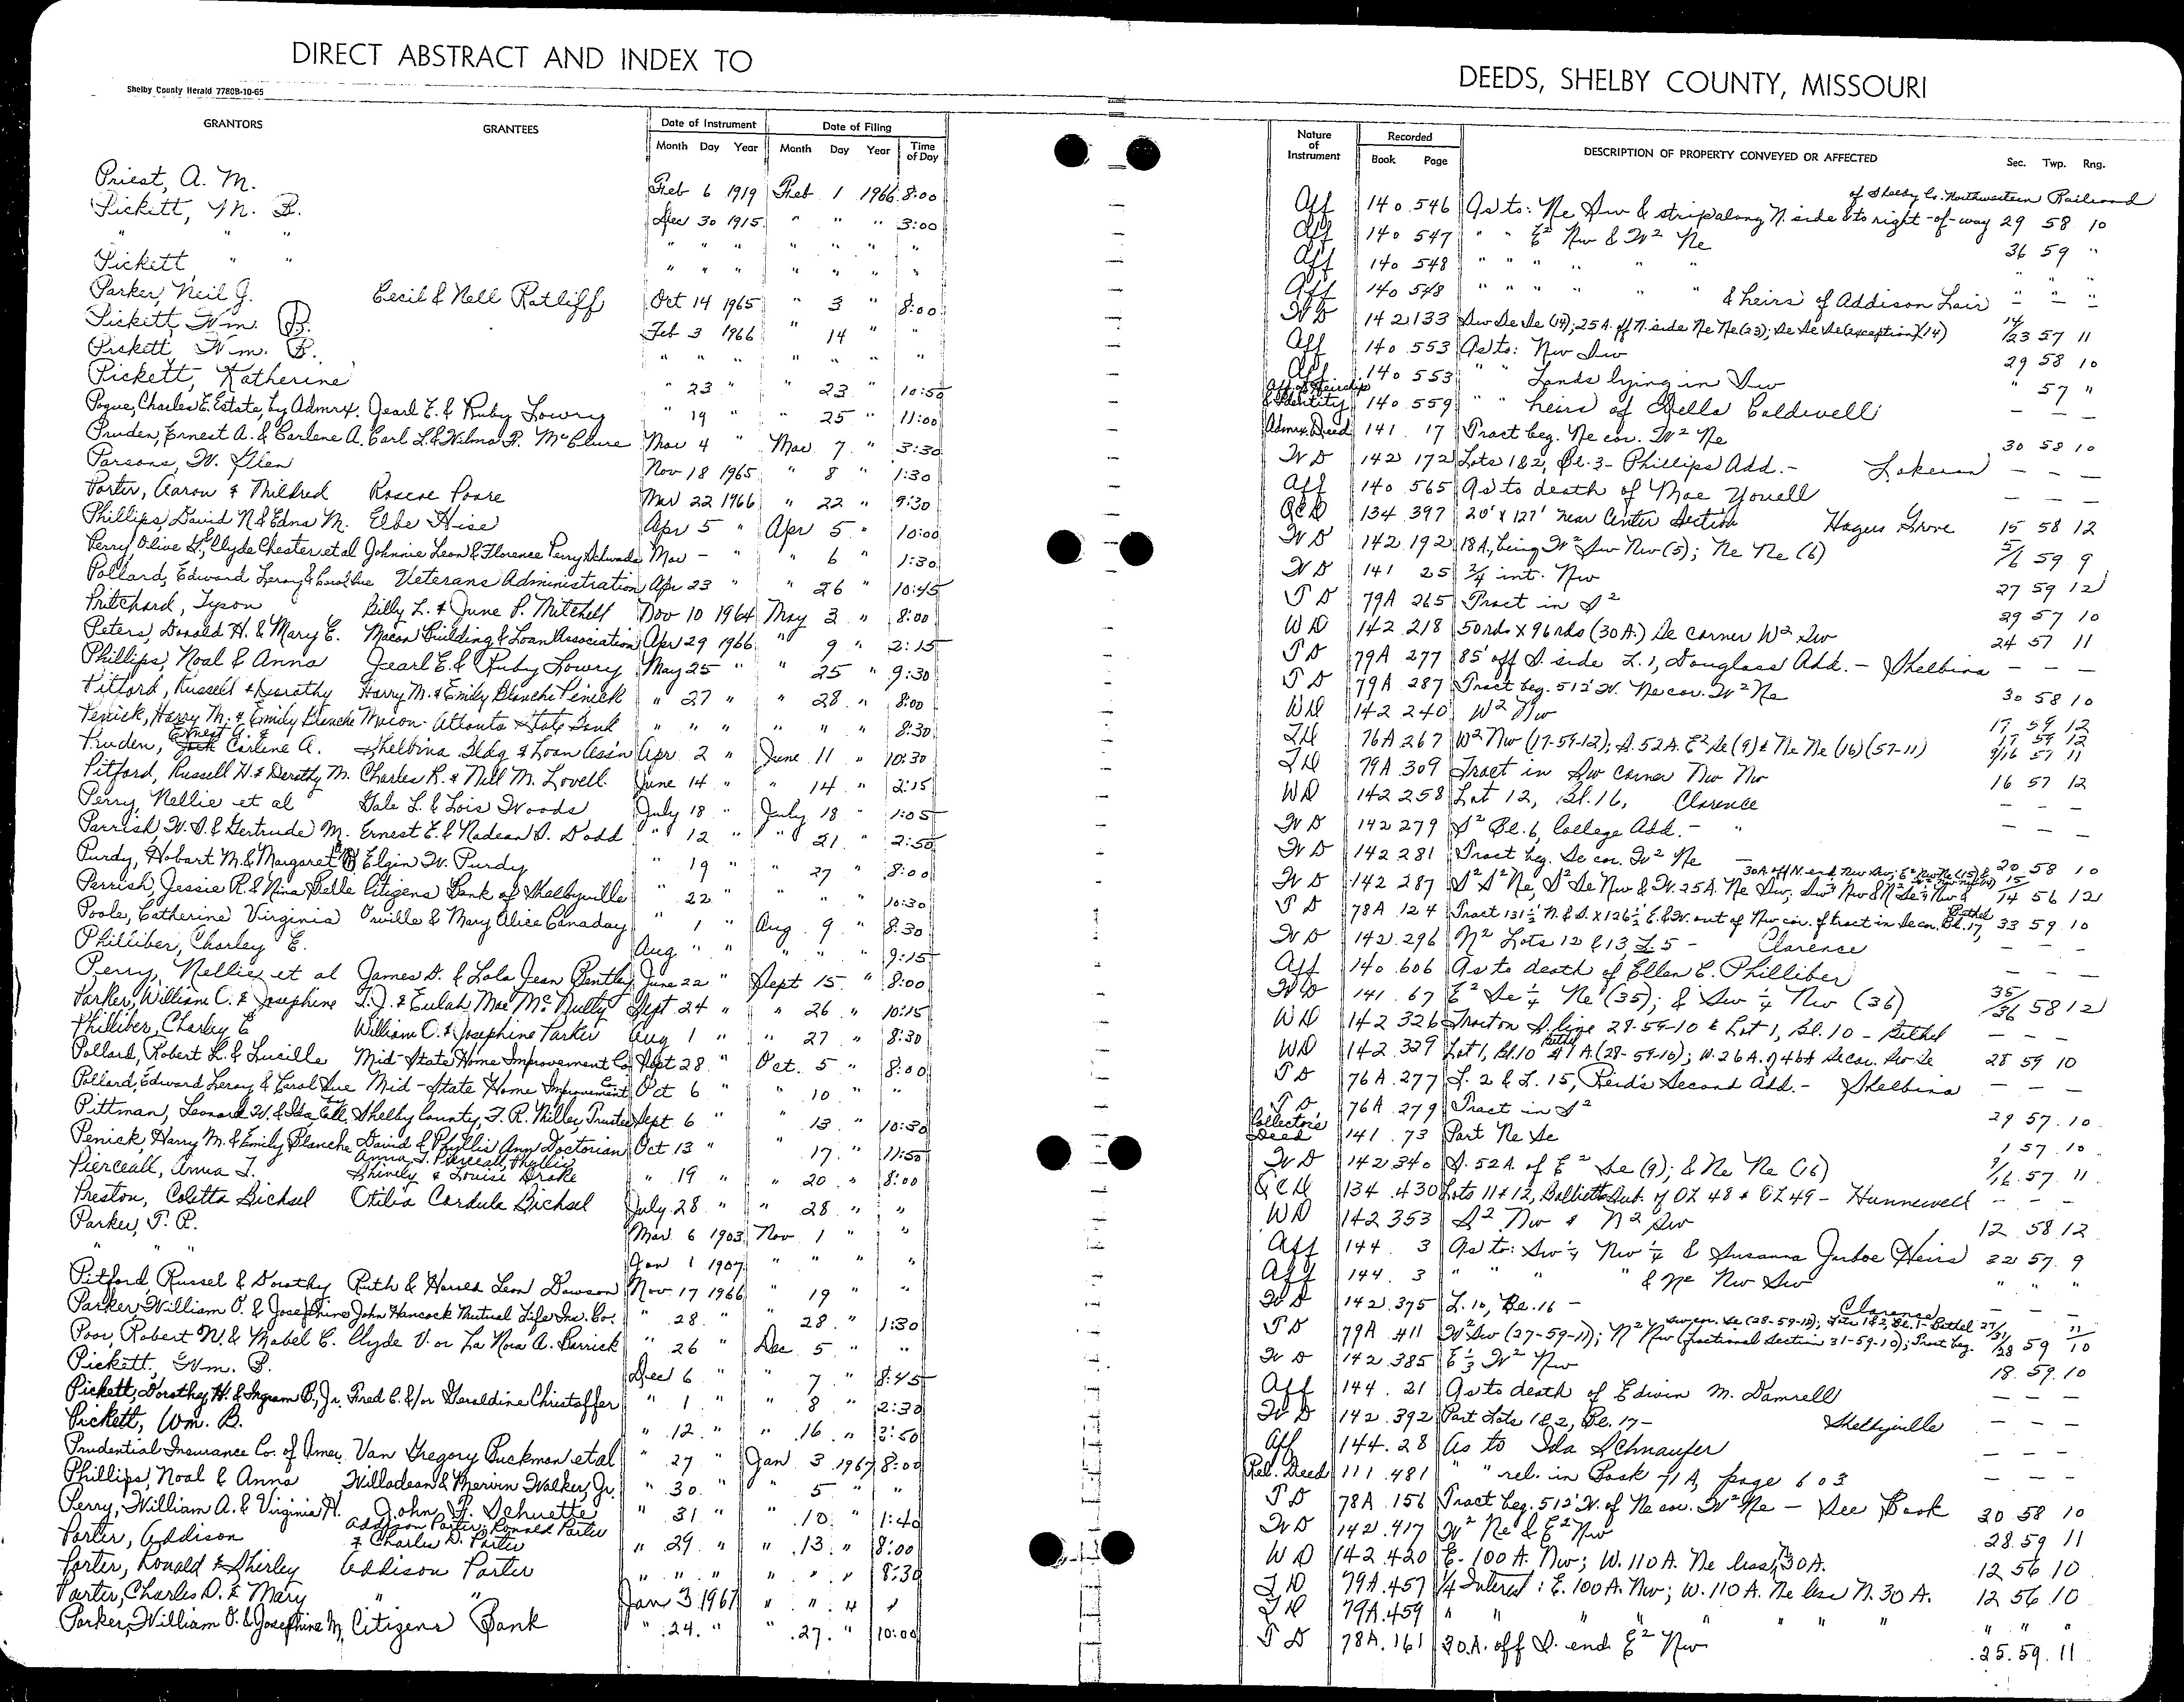 DIRECT ABSTRACT AND INDEX TO
DEEDS, SHELBY COUNTY, MISSOURI
Shelby County Herald 7780B-10-65
GRANTORS GRANTEES Date of Instrument Month Day Year Date of Filing Month Day Year Time of Day Nature of Instrument Recorded Book Page DESCRIPTION OF PROPERTY CONVEYED OR AFFECTED Sec. Twp. Rng.
of Shelby Co. Northwestern Railroad
Priest, A. M. Feb 6 1919 Feb 1 1966 8:00 Aff 140 546 As to: Ne Sw & strip along N. side & to right-of-way 29 58 10
Pickett, M. B. Dec 30 1915 " " " 3:00 Aff 140 547 " " E² Nw & W² Ne 36 59 "
" " " " " " " " " Aff 140 548 " " " " " " " " "
Pickett " " " " " " " " " Aff 140 548 " " " " " " & heirs of Addison Lair - - -
Parker, Neil J. Cecil & Nell Ratliff Oct 14 1965 " 3 " 8:00 W D 142 133 Sw Se Se (14); 25 A. off N. side Ne Ne (23); Se Se Se (exception) (14) 14/23 57 11
Pickett, Wm. B. Feb 3 1966 " 14 " " Aff 140 553 As to: Nw Sw 29 58 10
Pickett, Wm. B. " " " " " " " Aff 140 553 " " Lands lying in Sw " 57 "
Pickett, Katherine " 23 " " 23 " 10:50 Aff of Heirship & Identity 140 559 " " heirs of Della Caldwell - - -
Pogue, Charles E. Estate, by Admrx. Jearl E. & Ruby Lowry " 19 " " 25 " 11:00 Admrx. Deed 141 17 Tract beg. Ne cor. W² Ne 30 58 10
Pruden, Ernest A. & Carlene A. Carl L. & Wilma F. McClure Mar 4 " Mar 7 " 3:30 W D 142 172 Lots 1 & 2, Bl. 3 - Phillips Add. - Lakenan - -
Parsons, W. Glen Nov 18 1965 " 8 " 1:30 Aff 140 565 As to death of Mae Yowell - - -
Porter, Aaron & Mildred Roscoe Poore Mar 22 1966 " 22 " 9:30 QCD 134 397 20' x 127' near Center Section Hagers Grove 15 58 12
Phillips, David N. & Edna M. Elbe Hise Apr 5 " Apr 5 " 10:00 W D 142 192 18 A, being W² Sw Nw (5); Ne Ne (6) 5/6 59 9
Perry, Olive G., Clyde Chester et al Johnnie Leon & Florence Perry Mar - " " 6 " 1:30 W D 141 25 3/4 int. Nw 27 59 12
Pollard, Edward Leroy & Carol Sue Veterans Administration Apr 23 " " 26 " 10:45 T D 79A 265 Tract in S² 29 57 10
Pritchard, Tyson Billy L. & June P. Mitchell Nov 10 1964 May 3 " 8:00 WD 142 218 50 rds x 96 rds (30 A.) Se corner W² Sw 24 57 11
Peters, Donald H. & Mary E. Macon Building & Loan Association Apr 29 1966 " 9 " 2:15 T D 79A 277 85' off S. side L. 1, Douglass Add. - Shelbina - - -
Phillips, Noal & Anna Jearl E. & Ruby Lowry May 25 " " 25 " 9:30 T D 79A 287 Tract beg. 512' W. Ne cor. W² Ne 30 58 10
Pitford, Russell & Dorothy Harry M. & Emily Blanche Penick " 27 " " 28 " 8:00 WD 142 240 W² Nw 17 59 12
Penick, Harry M. & Emily Blanche Macon-Atlanta State Bank " " " " " " 8:30 TD 76A 267 W² Nw (17-59-12); S. 52A. E² Se (9) & Ne Ne (16) (57-11) 17 59 12 9/16 57 11
Pruden, Ernest A. & Carlene A. Shelbina Bldg & Loan Ass'n Apr 2 " June 11 " 10:30 TD 79A 309 Tract in Sw corner Nw Nw 16 57 12
Pitford, Russell H. & Dorothy M. Charles R. & Nell M. Lovell June 14 " " 14 " 2:15 WD 142 258 Lot 12, Bl. 16, Clarence - - -
Perry, Nellie et al Gale L. & Lois Woods July 18 " July 18 " 1:05 W D 142 279 S² Bl. 6, College Add. - " - - -
Parrish, W. S. & Gertrude M. Ernest E. & Nadean S. Dodd " 12 " " 21 " 2:50 W D 142 281 Tract beg. Se cor. W² Ne 20 58 10
Purdy, Hobart M. & Margaret Elgin W. Purdy " 19 " " 27 " 8:00 W D 142 287 S² S² Ne, S² Se Nw & W. 25 A. Ne Sw, 14 56 12
Parrish, Jessie R. & Nina Belle Citizens Bank of Shelbyville " 22 " " " " 10:30 T D 78A 124 Tract 131½' N. & S. x 126½ E. & W. out of Nw cor. of tract in Se cor. Bl. 17, Bethel 33 59 10
Poole, Catherine Virginia Orville & Mary Alice Canaday " 1 " Aug. 9 " 8:30 W D 142 296 N² Lots 12 & 13 L. 5 - Clarence - - -
Philliber, Charley E. Aug " " " " " 9:15 Aff 140 606 As to death of Ellen C. Philliber - - -
Perry, Nellie et al James D. & Lola Jean Bentley June 22 " Sept 15 " 8:00 W D 141 67 E² Se ¼ Ne (35); & Sw ¼ Nw (36) 35/36 58 12
Parker, William C. & Josephine T. J. & Eulah Mae McNulty Sept 24 " " 26 " 10:15 WD 142 326 Tract on S. line 28-59-10 & Lot 1, Bl. 10 - Bethel - - -
Philliber, Charley E William O. & Josephine Parker Aug 1 " " 27 " 8:30 WD 142 329 Lot 1, Bl. 10 Bethel & 7 A. (28-59-10); W. 26 A. of 46A Se cor. Sw Se 28 59 10
Pollard, Robert L. & Lucille Mid-State Home Improvement Co. Sept 28 " Oct. 5 " 8:00 T D 76A 277 L. 2 & L. 15, Reid's Second Add. - Shelbina - - -
Pollard, Edward Leroy & Carol Sue Mid-State Home Improvement Co Oct 6 " " 10 " " T D 76A 279 Tract in S² 29 57 10
Pittman, Leonard W. & Ida Shelby County, F. R. Miller, Trustee Sept. 6 " " 13 " 10:30 Collector's Deed 141 73 Part Ne Se 1 57 10
Penick, Harry M. & Emily Blanche David & Phyllis Ann Doctorian Oct 13 " " 17 " 11:50 W D 142 340 S. 52 A. of E² Se (9); & Ne Ne (16) 9/16 57 11
Pierceall, Anna T. Anna T. Pierceall, Phyllis Shively & Louise Drake " 19 " " 20 " 8:00 QCD 134 430 Lots 11 & 12, Sub. of OL 48 & OL 49 - Hunnewell - - -
Preston, Coletta Bichsel Otilia Cardula Bichsel July 28 " " 28 " " WD 142 353 S² Nw & N² Sw 12 58 12
Parker, T. P. Mar. 6 1903 Nov 1 " " Aff 144 3 As to: Sw¼ Nw ¼ & Susanna Jarboe Heirs 22 57 9
" " Jan 1 1907 " " " " Aff 144 3 " " " & Ne Nw Sw " " "
Pitford, Russel & Dorothy Ruth & Harold Leon Dawson Nov. 17 1966 " 19 " " W D 142 375 L. 10, Bl. 16 - Clarence - - -
Parker, William O. & Josephine John Hancock Mutual Life Ins. Co. " 28 " " 28 " 1:30 T D 79A 411 W² Sw (27-59-11); N² Nw (fractional section 31-59-10); Tract beg. Sw cor. Se (28-59-10); Lots 1 & 2, Bl. 1 - Bethel 27/31/28 59 11/10
Poor, Robert N. & Mabel C. Clyde V. or La Nora A. Barrick " 26 " Dec 5 " " W D 142 385 E ⅓ W² Nw 18 59 10
Pickett, Wm. B. Dec 6 " " 7 " 8:45 Aff 144 21 As to death of Edwin M. Damrell - - -
Pickett, Dorothy H. & Ingram B., Jr. Fred C. &/or Geraldine Christoffer " 1 " " 8 " 2:30 W D 142 392 Part Lots 1 & 2, Bl. 17 - Shelbyville - - -
Pickett, Wm. B. " 12 " " 16 " 3:50 Aff 144 28 As to Ida Schnaufer - - -
Prudential Insurance Co. of Amer. Van Gregory Buckman et al " 27 " Jan 3 1967 8:00 Rel. Deed 111 481 " " rel. in Book 71A, page 603 - - -
Phillips, Noal & Anna Willadean & Mervin Walker, Jr. " 30 " " 5 " " T D 78A 156 Tract beg. 512' W. of Ne cor. W² Ne - See Book 30 58 10
Perry, William A. & Virginia H. John F. Schuette " 31 " " 10 " 1:40 W D 142 417 W² Ne & E² Nw 28 59 11
Porter, Addison Addison Porter; Ronald Porter & Charles D. Porter " 29 " " 13 " 8:00 WD 142 420 E. 100 A. Nw; W. 110 A. Ne less N 30 A. 12 56 10
Porter, Ronald & Shirley Addison Porter " " " " " " 8:30 TD 79A 457 ¼ Interest: E. 100 A. Nw; W. 110 A. Ne less N. 30 A. 12 56 10
Porter, Charles D. & Mary " " Jan 3 1967 " " " " TD 79A 459 " " " " " " " " " "
Parker, William O. & Josephine M. Citizens Bank " 24 " " 27 " 10:00 T D 78A 161 30 A. off S. end E² Nw 25 59 11